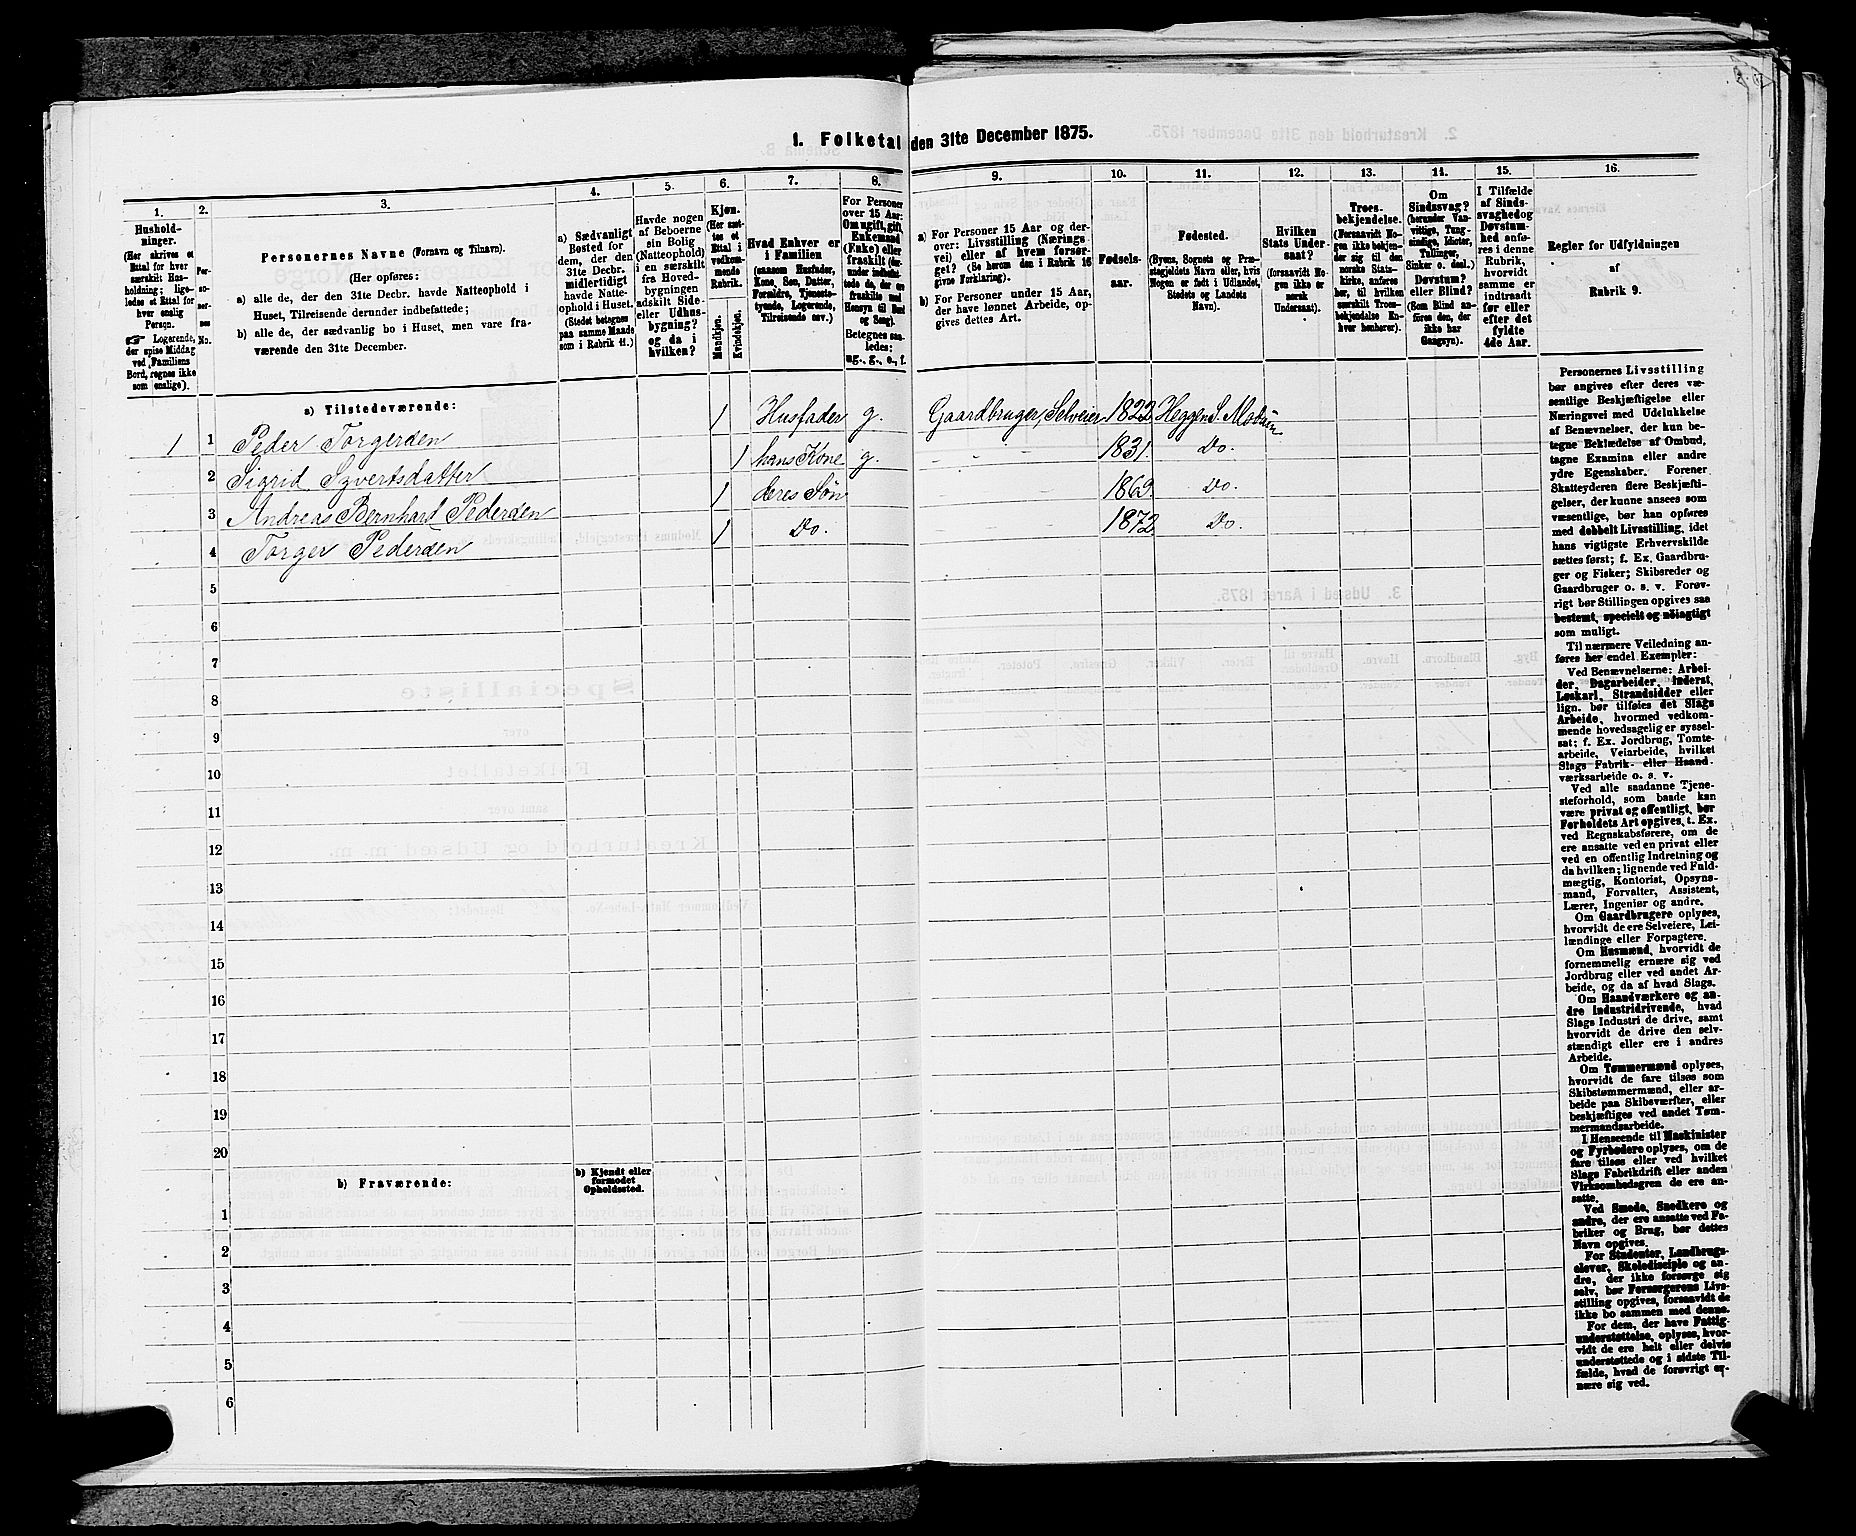 1. Folketal den 31te December 1875.
1.
Hushold-
ninger.
(Her skrives et
Ettal for hver
særskilt Hus-
holdning; lige-
ledes et Ettal for
hver enslig
Person.
☞ Logerende,
der spise Middag
ved Familiens
Bord, regnes ikke
som enslige).
2.
Per-
so-
ner-
nes
No.
3.
Personernes Navne (Fornavn og Tilnavn).
(Her opføres:
a) alle de, der den 31te Decbr. havde Natteophold i
Huset, Tilreisende derunder indbefattede;
b) alle de, der sædvanlig bo i Huset, men vare fra-
værende den 31te December.
4.
a) Sædvanligt
Bosted for
dem, der den
31te Decbr.
midlertidigt
havde Natte-
ophold i Huset.
(Stedet betegnes
paa samme Maade
som i Rubrik 11.)
5.
Havde nogen
af Beboerne
sin Bolig
(Natteophold)
i en særskilt
fra Hoved-
bygningen
adskilt Side-
eller Udhus-
bygning?
og da i
hvilken?
6.
Kjøn.
(Her sæt-
tes et
Ettal i
vedkom-
mende
Rubrik.
Mandkjøn.
Kvindekjøn.
7.
Hvad Enhver er
i Familien
(saasom Husfader,
Kone, Søn, Datter,
Forældre, Tjeneste-
tyende, Logerende,
Tilreisende osv.)
8.
For Personer
over 15 Aar:
Om ugift, gift,
Enkemand
(Enke) eller
fraskilt
Betegnes saa-
ledes:
ug., g., e., f.
9.
a) For Personer 15 Aar og der-
over: Livsstilling (Nærings-
vei) eller af hvem forsør-
get? (Se herom den i Rubrik 16
givne Forklaring).
b) For Personer under 15 Aar,
der have lønnet Arbeide, op-
gives dettes Art.
10.
Fødsels-
aar.
11.
Fødested.
(Byens, Sognets og Præ-
stegjeldets Navn, eller, hvis
Nogen er født i Udlandet,
Stedets og Landets
Navn).
12.
Hvilken
Stats Under-
saat?
(forsaavidt No-
gen ikke er
norsk
Undersaat).
13.
Troes-
bekjendelse.
(Forsaavidt No-
gen ikke bekjen-
der sig til den
norske Stats-
kirke, anføres
her, til hvilken
særskilt Troes-
bekjendelse En-
hver henhører).
14.
Om
Sindssvag?
(herunder Van-
vittige, Tung-
sindige, Idioter,
Tullinger,
Sinker o. desl.)
Døvstum?
eller Blind?
(Som Blind an-
føres den, der
ikke har
Gangsyn).
15.
I Tilfælde
af Sinds-
svaghed og
Døvstum-
hed anfø-
res i denne
Rubrik,
hvorvidt
samme er
indtraadt
før eller
efter det
fyldte
4de Aar.
16.
Regler for Udfyldningen
af
Rubrik 9.
a) Tilstedeværende:
1 1 Peder Torgersen 1 Husfader g. Gaardbruger, Selveier 1822 Heggen S. Modum
2 Sigrid Syvertsdatter 1 hans Kone g. 1831. Do.
3 Andreas Bernhard Pedersen 1 deres Søn 1869. Do.
4 Torger Pedersen 1 Do. 1872. Do.
5
6
7
8
9
10
11
12
13
14
15
16
17
18
19
20
b) Fraværende:
b) Kjendt eller
formodet
Opholdssted.
1
2
3
4
5
6
Personernes Livsstilling
bør angives efter deres væ-
sentlige Beskjæftigelse eller
Næringsvei med Udelukkelse
af Benævnelser, der kun be-
tegne Beklædelse af Ombud,
tagne Examina eller andre
ydre Egenskaber. Forener
Skatteyderen flere Beskjæfti-
gelser, der kunne ansees som
væsentlige, bør han opføres
med dobbelt Livsstilling, idet
hans vigtigste Erhvervskilde
sættes først; f. Ex. Gaardbru-
ger og Fisker; Skibsreder og
Gaardbruger o. s. v. Forøv-
rigt bør Stillingen opgives saa
bestemt, specielt og nöiagtigt
som muligt.
Til nærmere Veiledning an-
føres her endel Exempler:
Ved Benævnelserne: Arbei-
der, Dagarbeider, Inderst,
Løskarl, Strandsidder eller
lign. bør tilføies det Slags
Arbeide, hvormed vedkom-
mende hovedsagelig er syssel-
sat; f. Ex. Jordbrug, Tomte-
arbeide, Veiarbeide, hvilket
Slags Fabrik- eller Haand-
værksarbeide o. s. v.
Ved alle saadanne Tjene-
steforhold, som baade kan
være privat og offentligt, bør
Forholdets Art opgives, t. Ex.
ved Regnskabsførere, om de
ere ansatte ved en privat eller
ved en offentlig Indretning og
da hvilken; lignende ved Fuld-
mægtig, Kontorist, Opsyns-
mand, Forvalter, Assistent,
Lærer, Ingeniør og andre.
Om Gaardbrugere oplyses,
hvorvidt de ere Selveiere, Lei-
lændinge eller Forpagtere.
Om Husmænd, hvorvidt de
fornemmelig ernære sig ved
Jordbrug eller ved andet Ar-
beide, og da af hvad Slags.
Om Haandværkere og an-
dre Industridrivende, hvad
Slags Industri de drive, samt
hvorvidt de drive den selv-
stændigt eller ere i andres
Arbeide.
Om Tømmermænd oplyses,
hvorvidt de fare tilsøs som
Skibstømmermænd, eller ar-
beide paa Skibsværfter, eller
beskjæftiges ved andet Tøm-
mermandsarbeide.
I Henseende til Maskinister
og Fyrbødere oplyses, om de
fare tilsøs eller ved hvilket
Slags Fabrikdrift eller anden
Virksomhedsgren de ere an-
satte.
Ved Smede, Snedkere og
andre, der ere ansatte ved Fa-
briker og Brug, bør dettes
Navn opgives.
For Studenter, Landbrugs-
elever, Skoledisciple og an-
dre, der ikke forsørge sig
selv, bør Forsørgerens Livs-
stilling opgives, forsaavidt de
ikke bo sammen med denne.
For dem, der have Fattig-
understøttelse, oplyses, hvor-
vidt de ere helt eller delvis
understøttede og i sidste Til-
fælde, hvad de forøvrigt er-
nære sig ved.